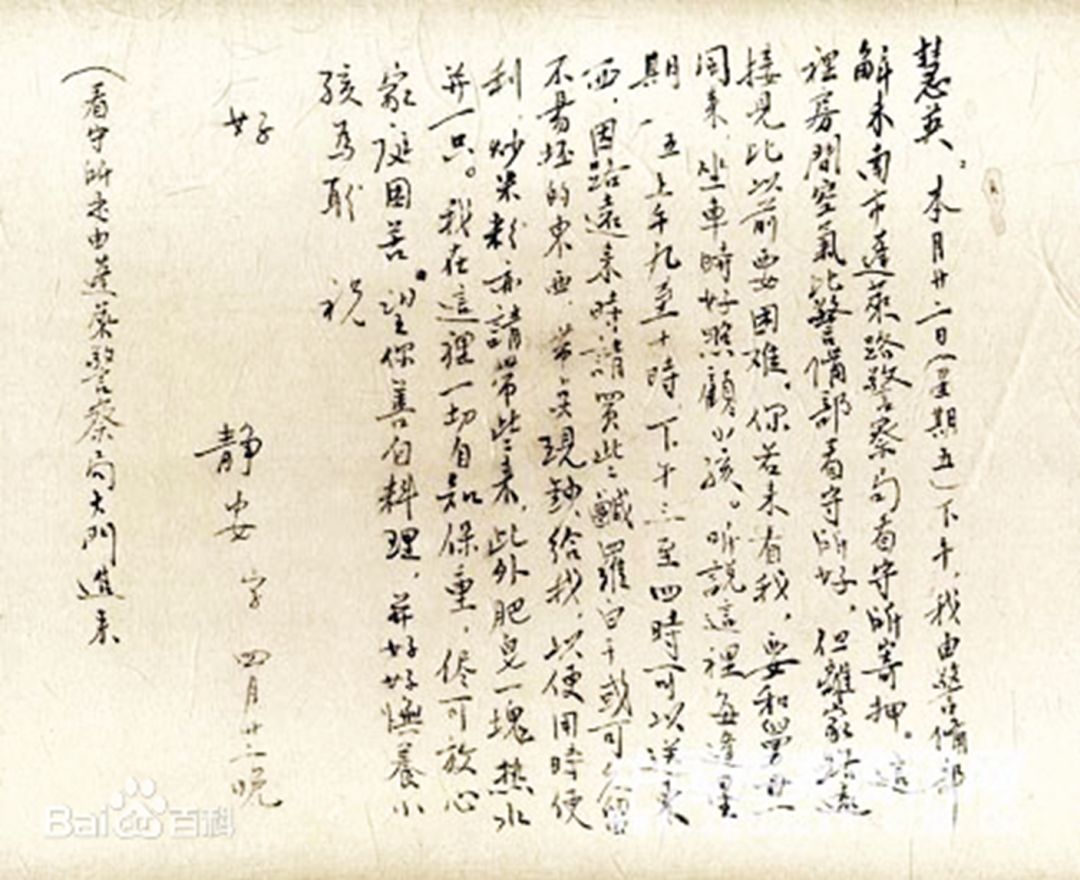 慧英，本月廿二日（星期五）下午，我由警備部
解来南市蓬萊路警察局看守所寄押。這
裡房間空氣比警備部看守所好，但離家路遠
接見比以前要困难。你若来看我，要和
同来，坐車時好照顧小孩。听說這裡每逢星
期一、五上午九至十時，下午三至四時可以送東
西，因路遠来時請買些鹹羅白干或可久留
不易壞的東西，帶些現鈔給我，以便用時便
利，炒米粉亦請帶些来，此外肥皂一塊熱水
并一只。我在這裡一切自知保重，侭可放心
家庭困苦，望你善自料理，并好好撫養小
孩為盼 祝
好
靜安 字 四月廿二晚
（看守所是由蓬萊警察局大門進来
Baidu百科